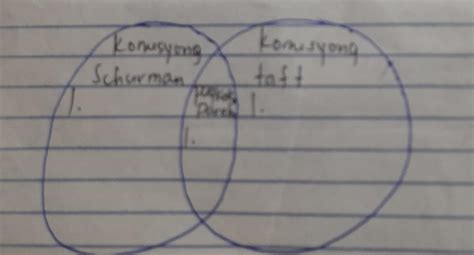 komisyong
Schurman
1.
komisyong
taft
1.
1.